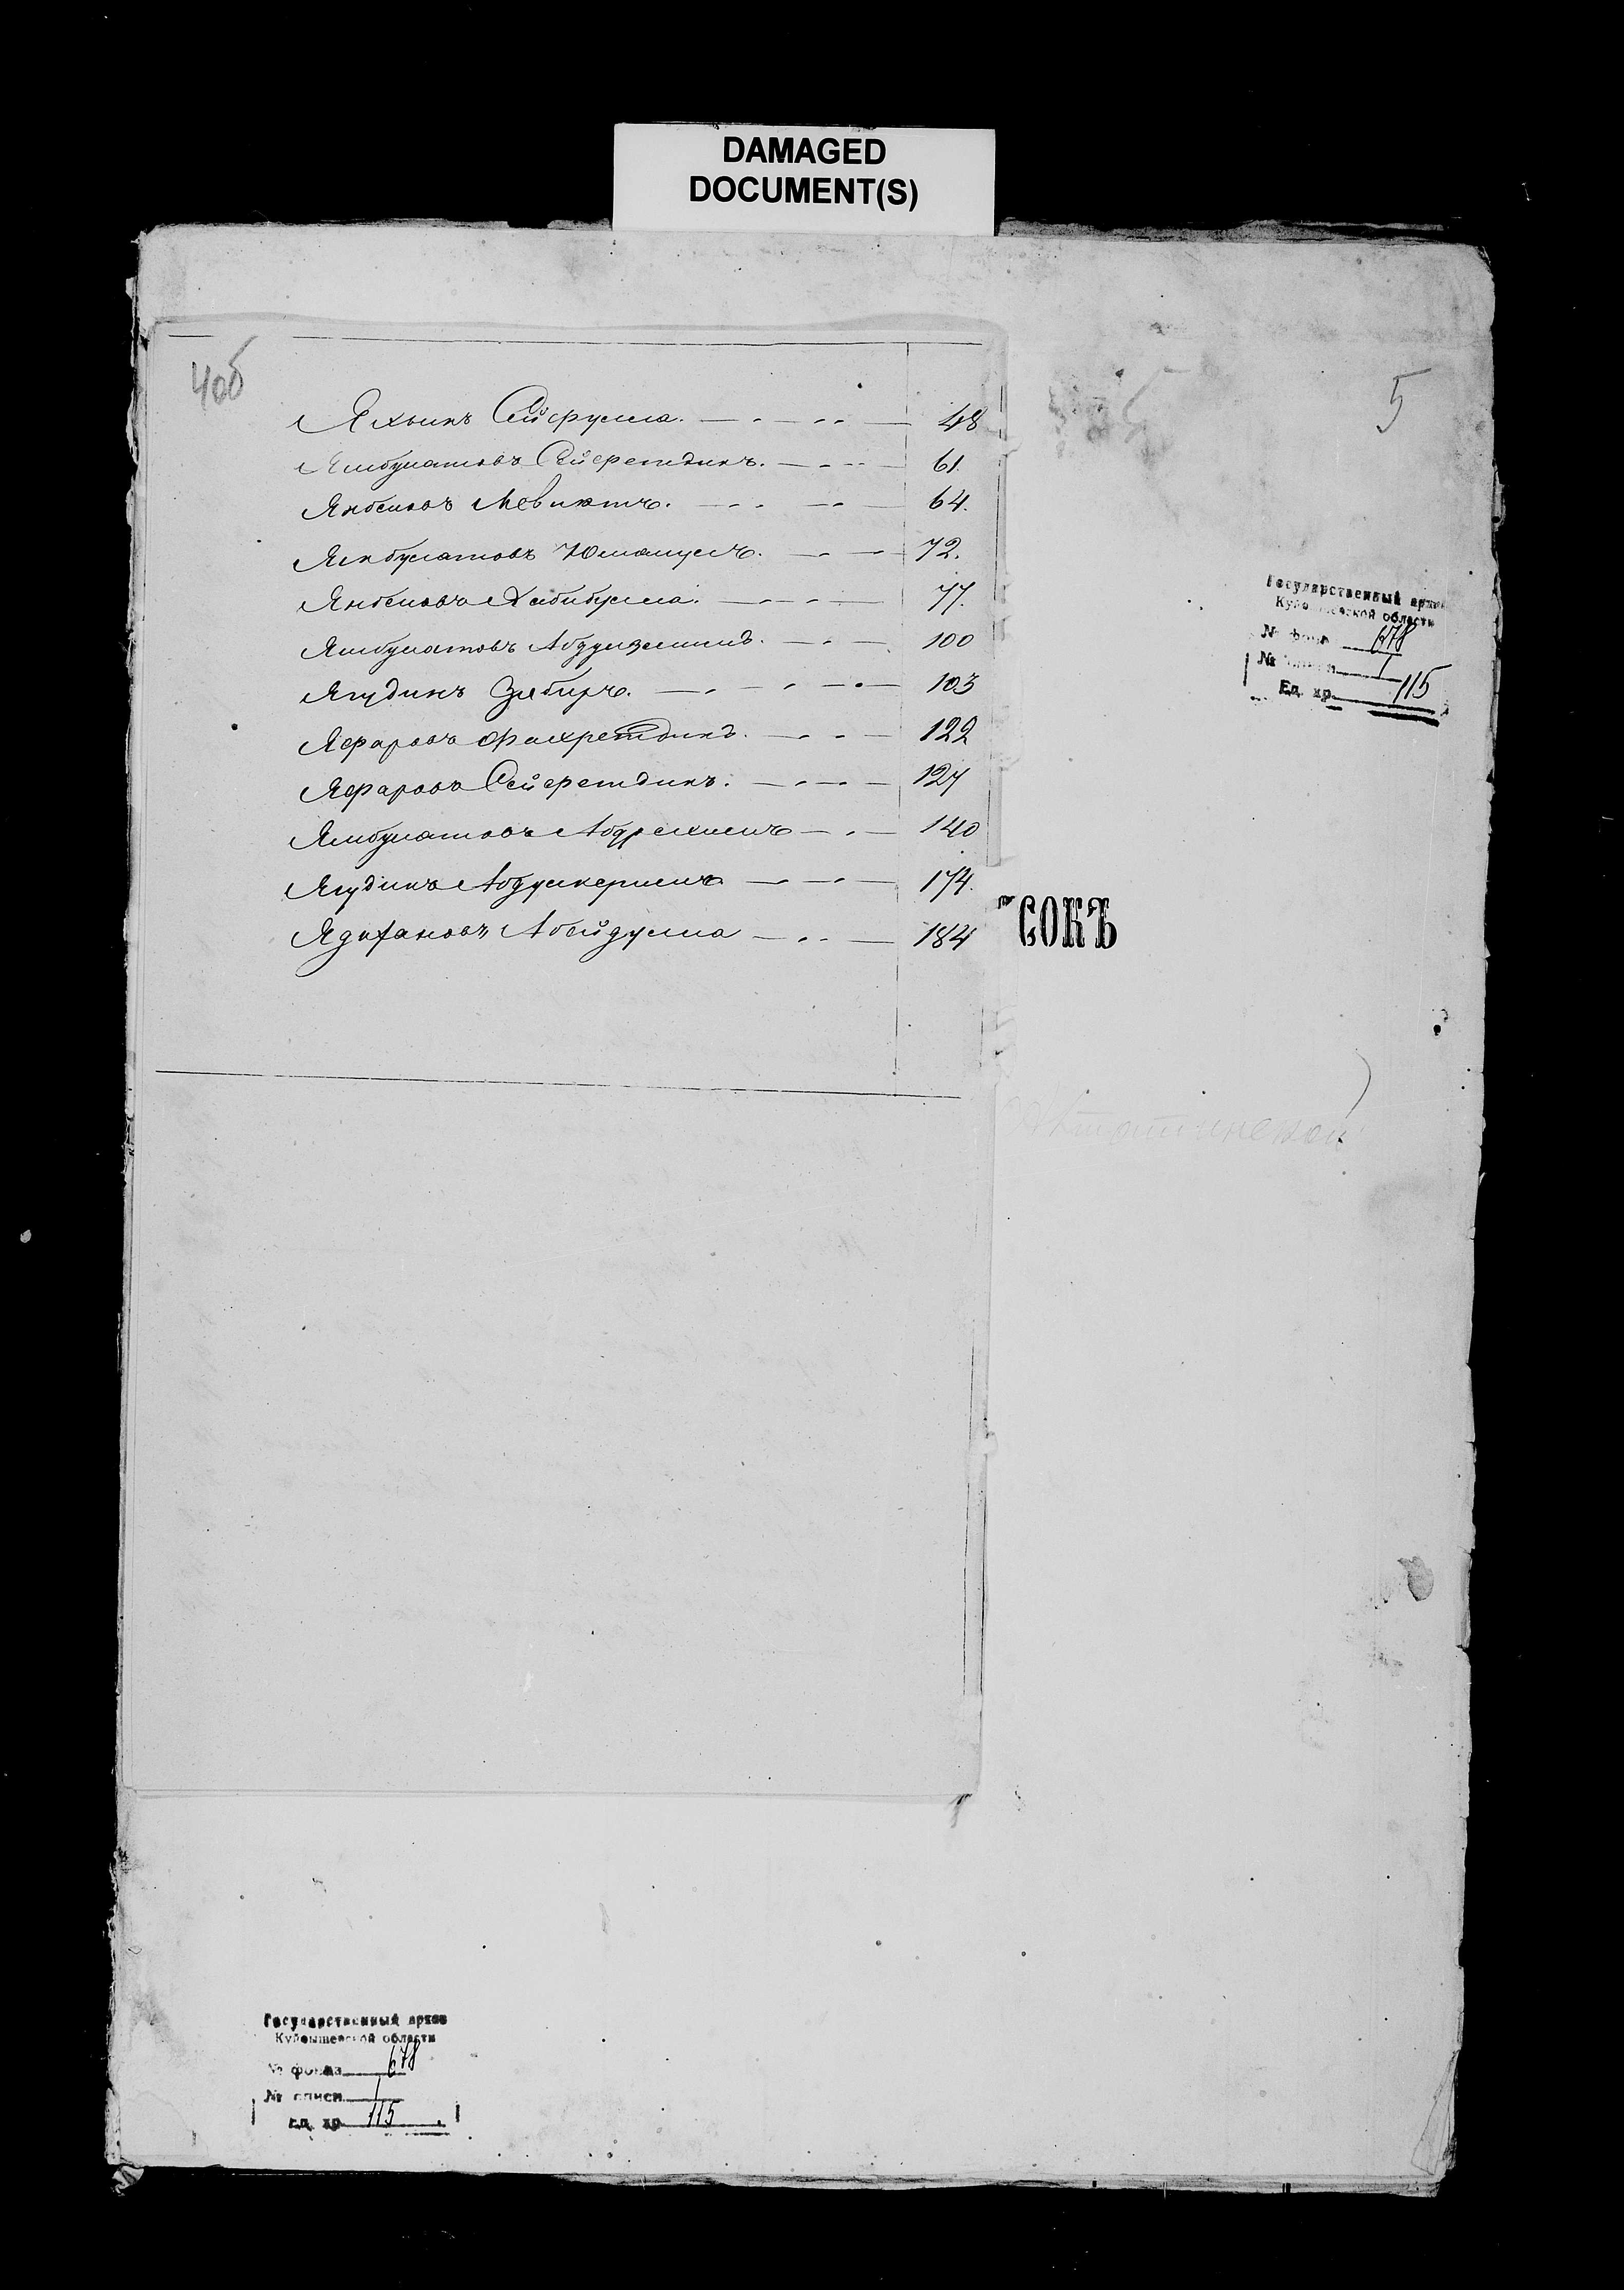 DAMAGED
DOCUMENT(S)
4об
Яхьинъ Сейфулла. 48
Ямбулатовъ Сейфетдинъ. 61.
Янбековъ Мевлютъ. 64.
Янбулатовъ Юмакулъ. 72.
Янбековъ Хабибулла. 77.
Ямбулатовъ Абдулвелитъ. 100
Ягудинъ Забиръ. 103
Яфаровъ Фахретдинъ. 122
Яфаровъ Сейфетдинъ. 127
Ямбулатовъ Абдрахимъ 140
Ягудинъ Абдулкеримъ 174.
Ядихановъ Абейдулла 184
5
Государственный архив
Куйбышевской области
№ фонда 678
№ описи 1
Ед. хр. 115
СОКЪ
Государственный архив
Куйбышевской области
№ фонда 678
№ описи 1
Ед. хр. 115